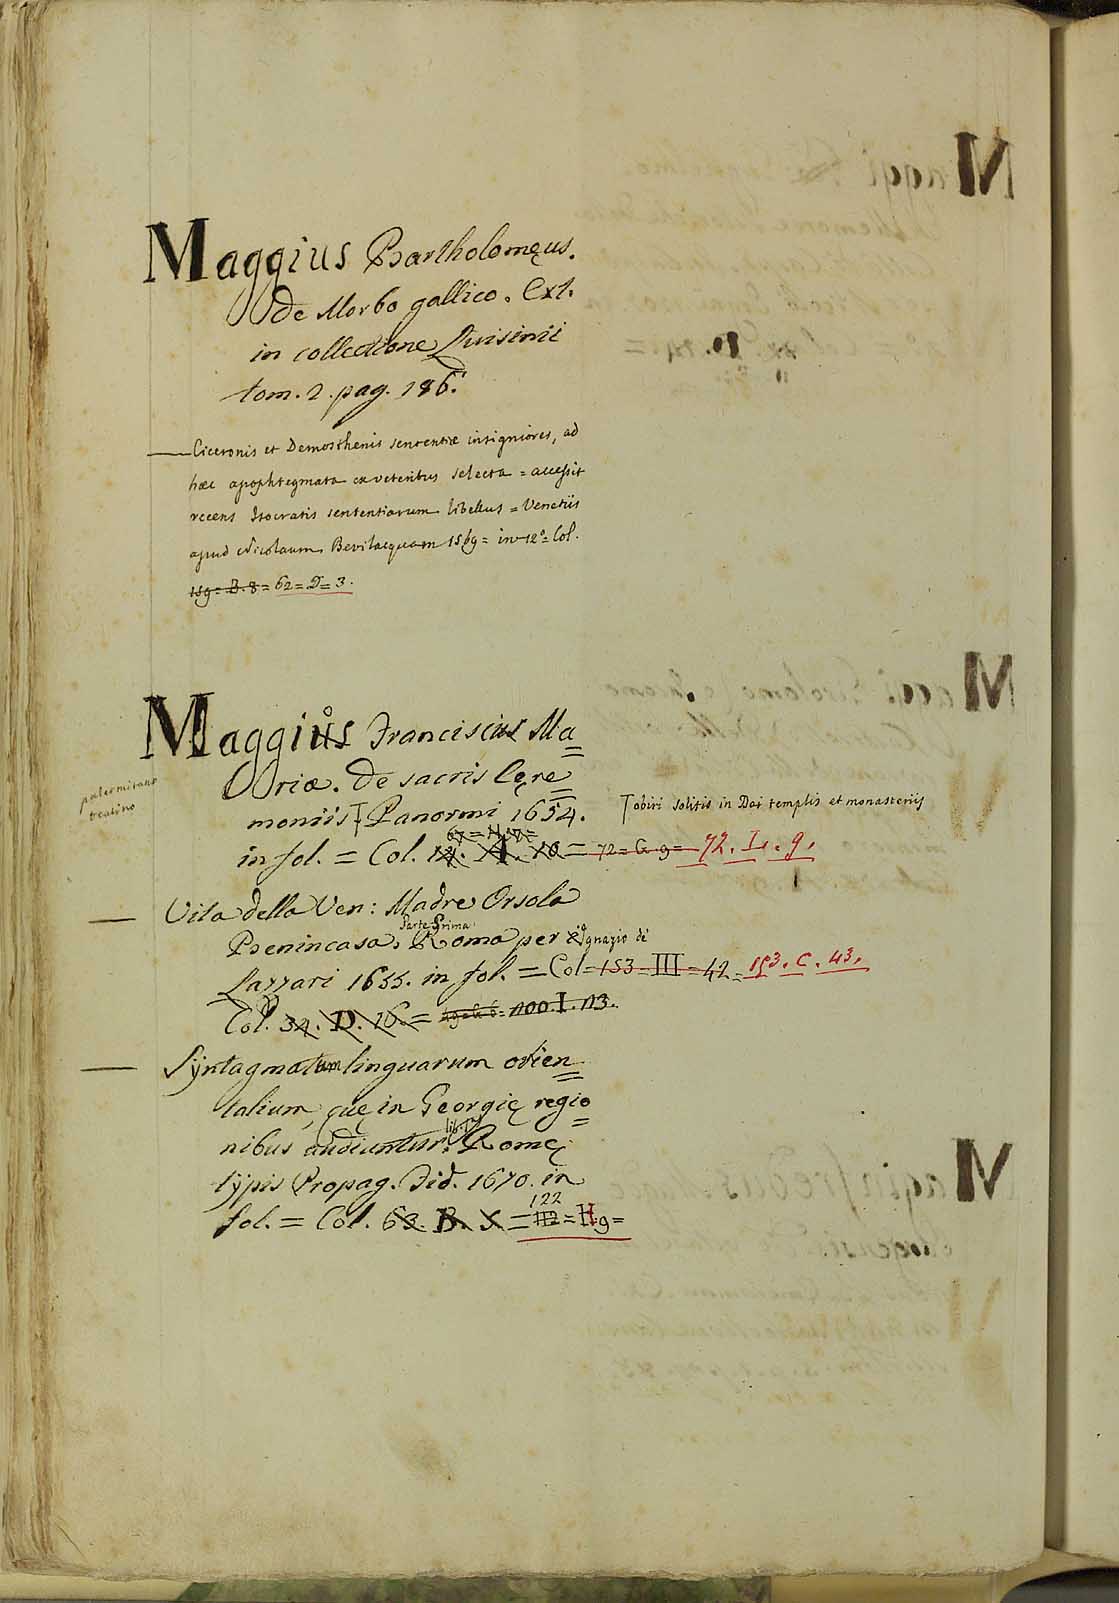 Maggius Bartholomęus.
De Morbo gallico. Ext.
in collectione Luisinii
tom. 2. pag. 186.
Ciceronis et Demosthenis sententiæ insigniores, ad
hæc apophtegmata ex veteribus selecta = accessit
recens Isocratis sententiarum libellus = Venetiis
apud Nicolaum Bevilacquam 1569 = in 12° = Col.
159 = B. 8 = 62 = D = 3.
Maggius Franciscus Ma
palermitano
teatino
riæ. De sacris Cęre
moniis Panormi 1654.
obiri solitis in Dei templis et monasteriis
in fol. = Col. A. 10 = 72 = G 9 = 72. I. 9.
Vita della Ven: Madre Orsola
Parte Prima
Benincasa, Roma per Ignazio di
Lazzari 1655. in fol. = Col 153 = III = 42 = 153. C. 43.
Col. 34. D. 16. = 100. I. 13.
Syntagmatum linguarum orien
talium, quę in Georgię regio
nibus audiuntur. lib. Romę
typis Propag. Fid. 1670. in
122
fol. = Col. 63. B. 5 = 112 = H 9 =